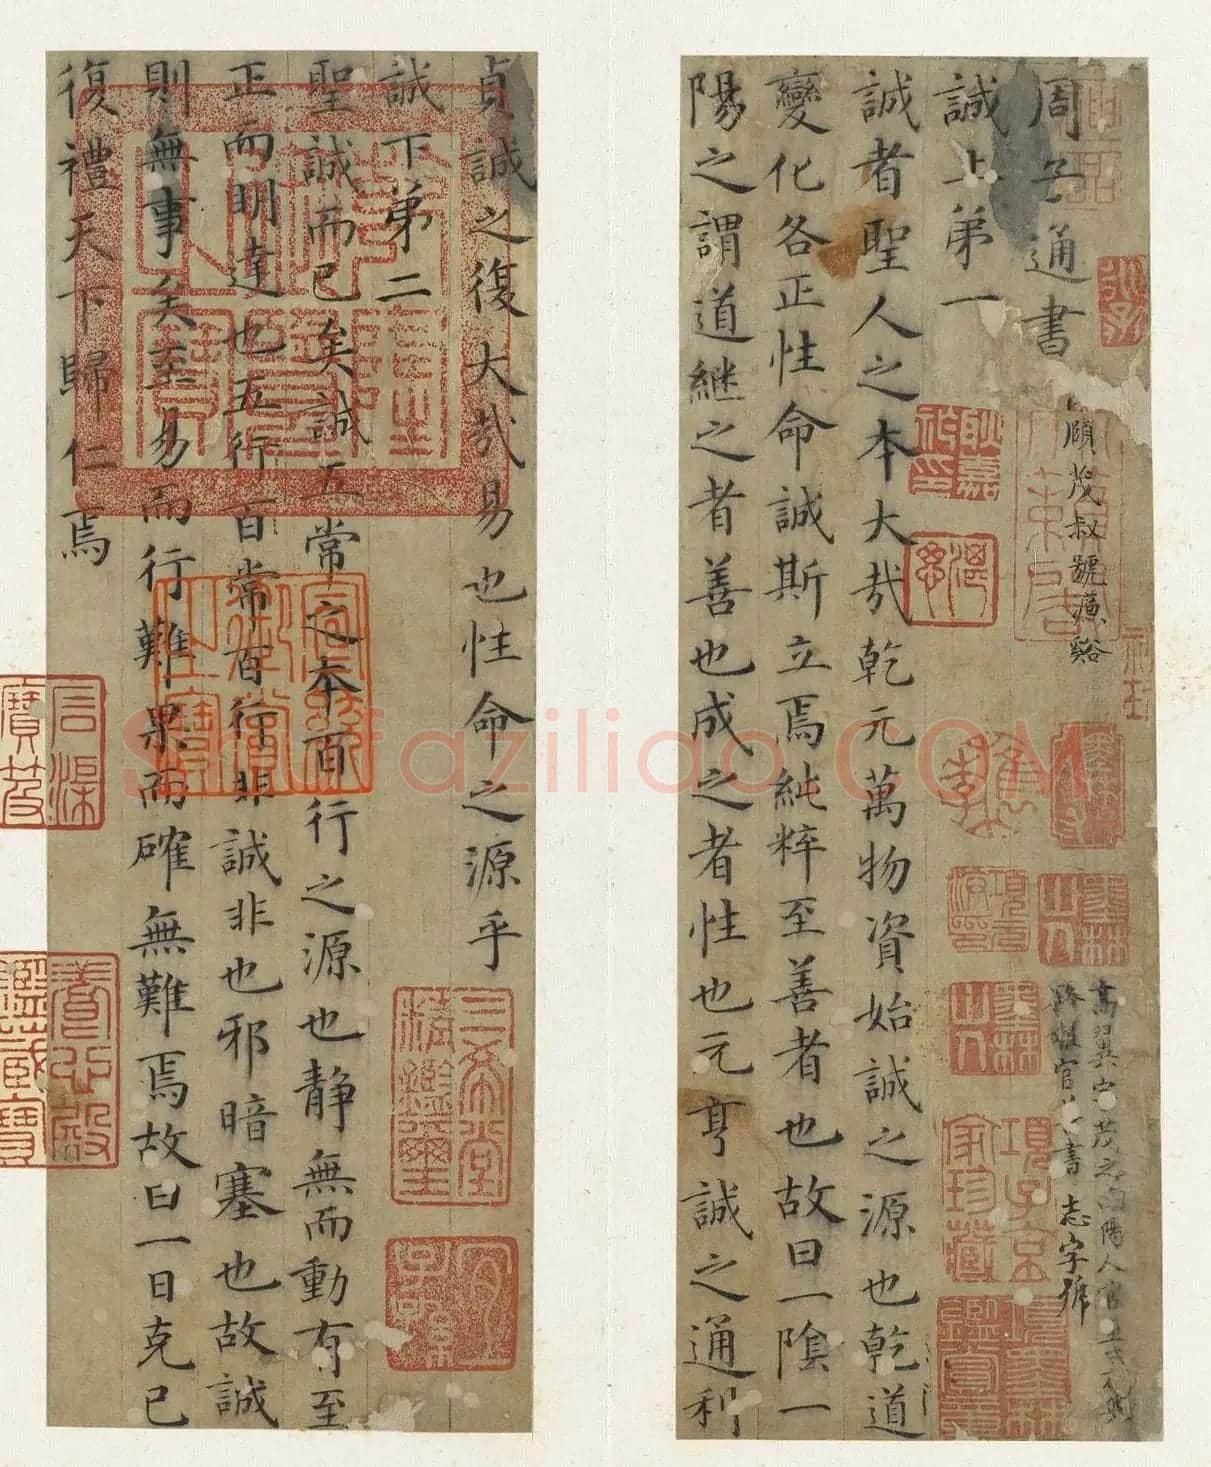 周子通書
頤茂叔號濂谿
誠上弟一
誠者聖人之本大哉乾元萬物資始誠之源也乾道
變化各正性命誠斯立焉純粹至善者也故曰一陰一
陽之謂道継之者善也成之者性也元亨誠之通利
貞誠之復大哉易也性命之源乎
誠下弟二
聖誠而已矣誠五常之本百行之源也静無而動有至
正而明達也五行百常百行非誠非也邪暗塞也故誠
則無事矣至易而行難果而確無難焉故曰一日克己
復禮天下歸仁焉
耿嘉祚印
三希堂精鑒璽
宜子孫
項子京家珍藏
墨林山人
養心殿鑑藏寶
石渠寶笈
Shufaziliao.COM